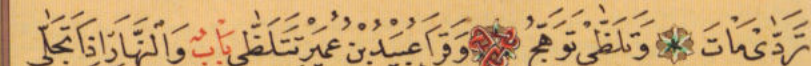 تَرَدَّىٰ مَاتَ وَتَلَظَّىٰ تَوَهَّجُ وَقَرَأَ عُبَيْدُ بْنُ عُمَيْرٍ تَتَلَظَّى بَابٌ وَالنَّهَارِ إِذَا تَجَلَّى